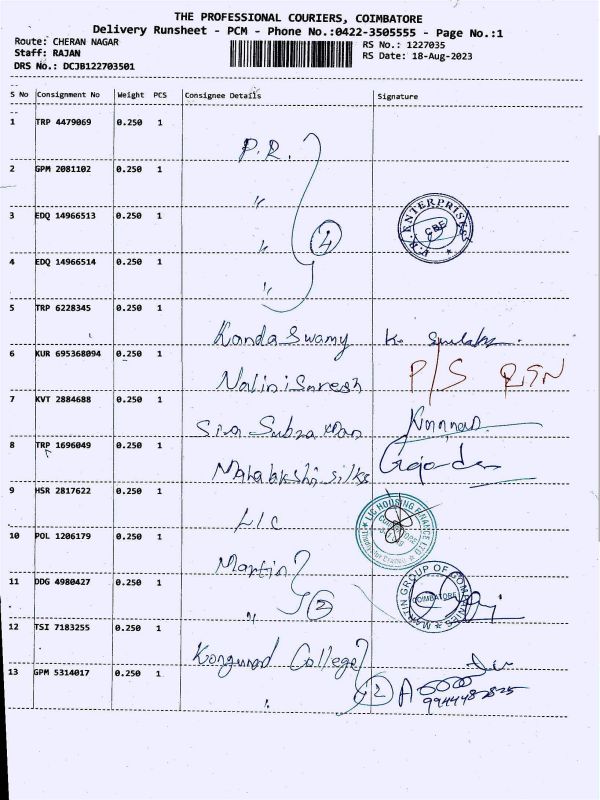 THE PROFESSIONAL COURIERS, COIMBATORE
Delivery Runsheet - PCM - Phone No.:0422-3505555 - Page No.:1
Route: CHERAN NAGAR
RS No.: 1227035
Staff: RAJAN
RS Date: 18-Aug-2023
DRS No.: DCJB122703501
S No Consignment No Weight PCS Consignee Details Signature
1 TRP 4479069 0.250 1 P.R.
2 GPM 2081102 0.250 1 "
3 EDQ 14966513 0.250 1 " 4 ENTERPRISES CBE
4 EDQ 14966514 0.250 1 "
5 TRP 6228345 0.250 1 Kanda Swamy K.
6 KUR 695368094 0.250 1 Nalini Suresh P/S
7 KVT 2884688 0.250 1 Siva
8 TRP 1696049 0.250 1 Mahalakshi silks
9 HSR 2817622 0.250 1 LIC LIC HOUSING FINANCE LTD
10 POL 1206179 0.250 1 Martin
11 DDG 4980427 0.250 1 " 2 MARTIN GROUP OF COMPANIES COIMBATORE
12 TSI 7183255 0.250 1 Kongunad College
13 GPM 5314017 0.250 1 " 2